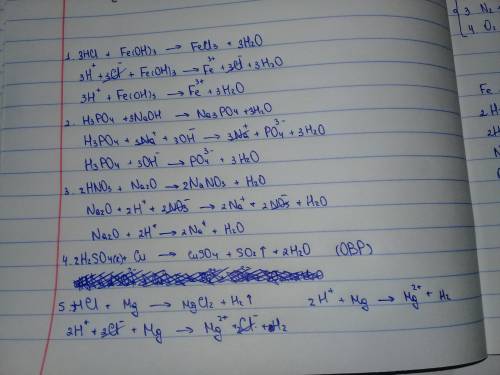 1. 3HCl + Fe(OH)₃ → FeCl₃ + 3H₂O
3H⁺ + 3Cl⁻ + Fe(OH)₃ → Fe³⁺ + 3Cl⁻ + 3H₂O
3H⁺ + Fe(OH)₃ → Fe³⁺ + 3H₂O
2. H₃PO₄ + 3NaOH → Na₃PO₄ + 3H₂O
H₃PO₄ + 3Na⁺ + 3OH⁻ → 3Na⁺ + PO₄³⁻ + 3H₂O
H₃PO₄ + 3OH⁻ → PO₄³⁻ + 3H₂O
3. 2HNO₃ + Na₂O → 2NaNO₃ + H₂O
Na₂O + 2H⁺ + 2NO₃⁻ → 2Na⁺ + 2NO₃⁻ + H₂O
Na₂O + 2H⁺ → 2Na⁺ + H₂O
4. 2H₂SO₄(к) + Cu → CuSO₄ + SO₂↑ + 2H₂O (ОВР)
5. 2HCl + Mg → MgCl₂ + H₂↑
2H⁺ + Mg → Mg²⁺ + H₂
2H⁺ + 2Cl⁻ + Mg → Mg²⁺ + 2Cl⁻ + H₂
3 N₂
4 O₂
Fe